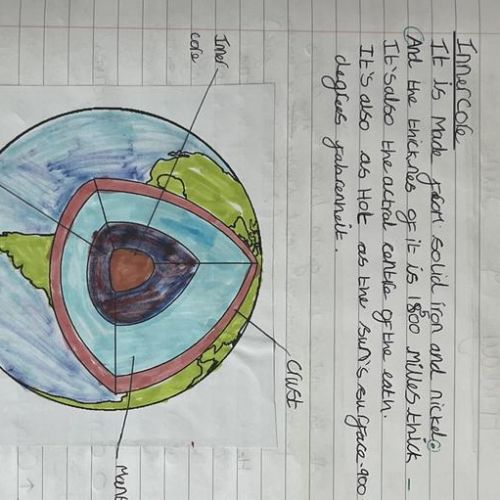 Inner Core
It is Made from solid iron and nickel.
And the thicknes of it is 1800 Milles thick -
It's also the actral centre of the eath.
It's also as Hot as the sun's surface-900
degrees fahrenheit.
Inner
core
Crust
Mant